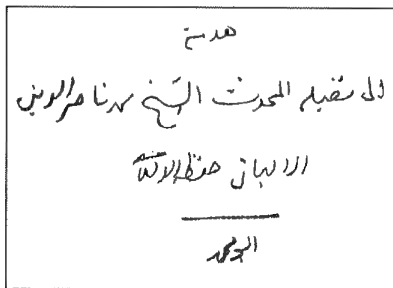 هدية
إلى فضيلة المحدث الشيخ محمد ناصر الدين
الألباني حفظه الله
أبو محمد